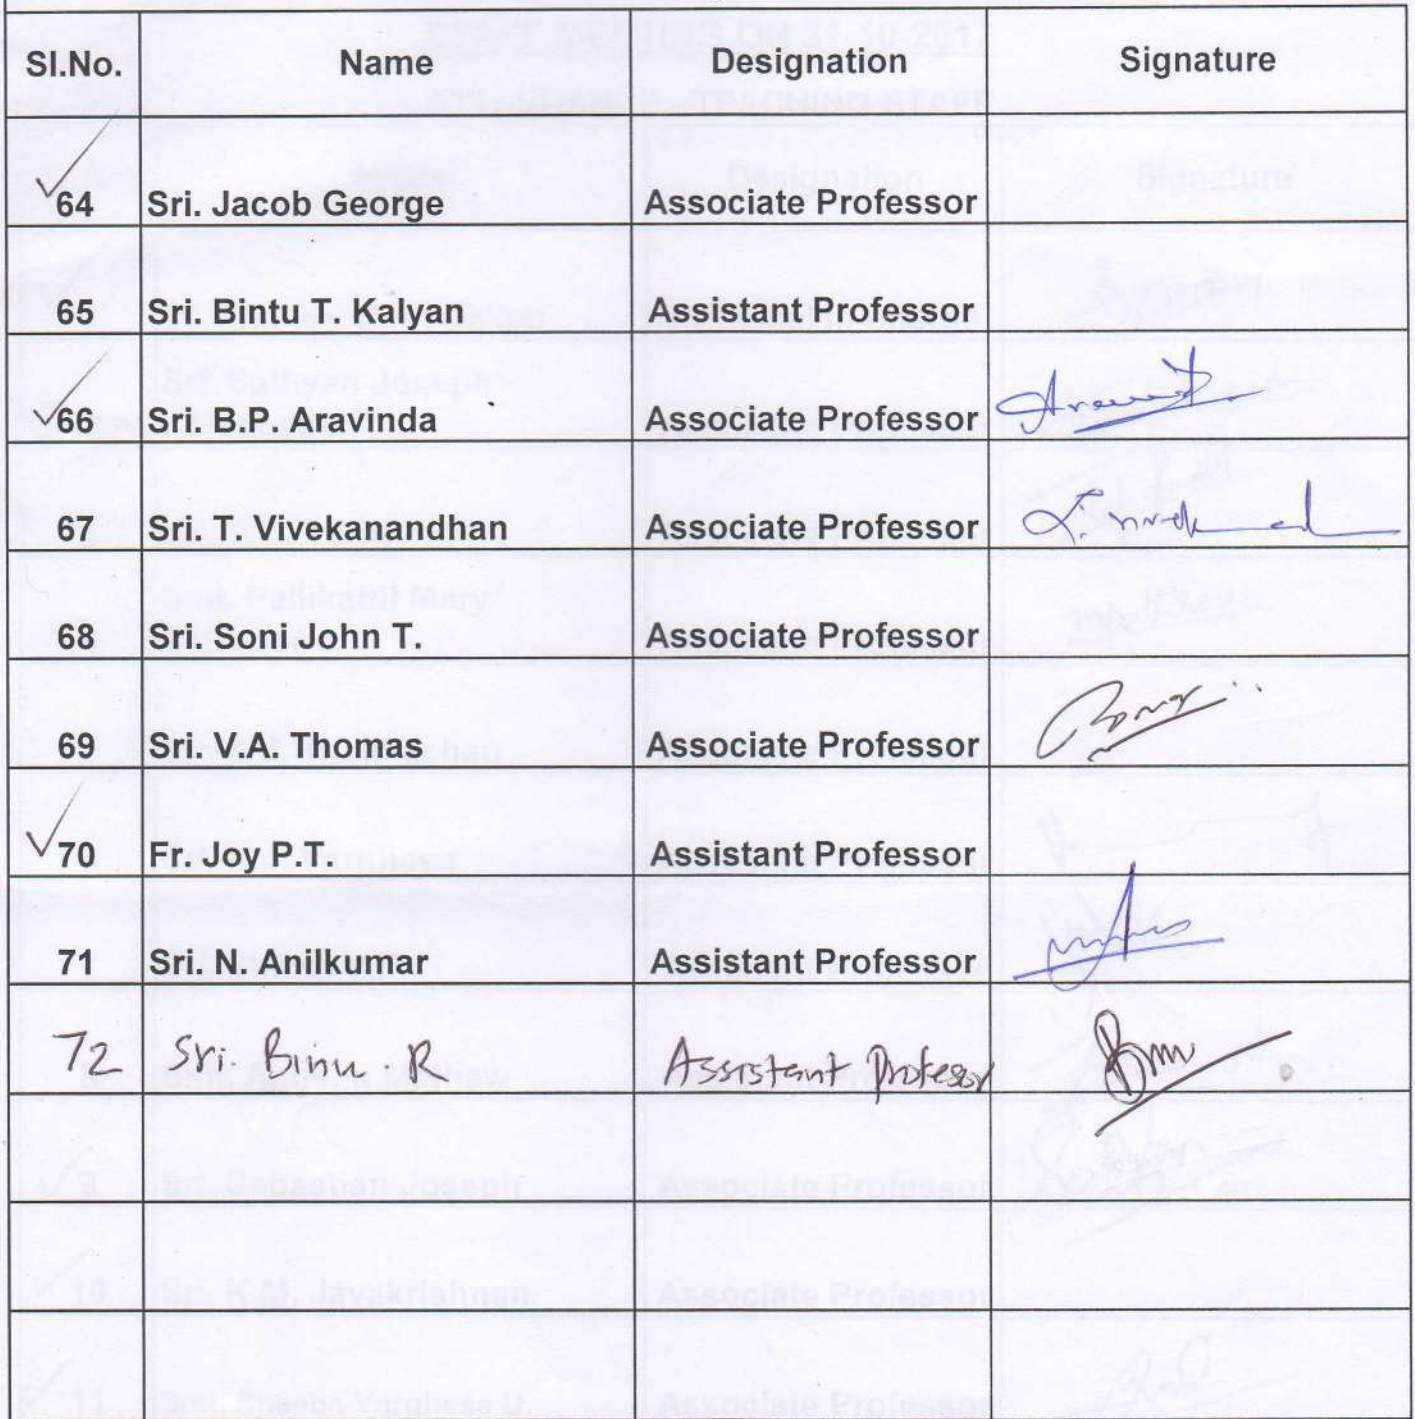 Sl.No. Name Designation Signature
64 Sri. Jacob George Associate Professor
65 Sri. Bintu T. Kalyan Assistant Professor
66 Sri. B.P. Aravinda Associate Professor
67 Sri. T. Vivekanandhan Associate Professor
68 Sri. Soni John T. Associate Professor
69 Sri. V.A. Thomas Associate Professor
70 Fr. Joy P.T. Assistant Professor
71 Sri. N. Anilkumar Assistant Professor
72 Sri. Binu. R Assistant Professor